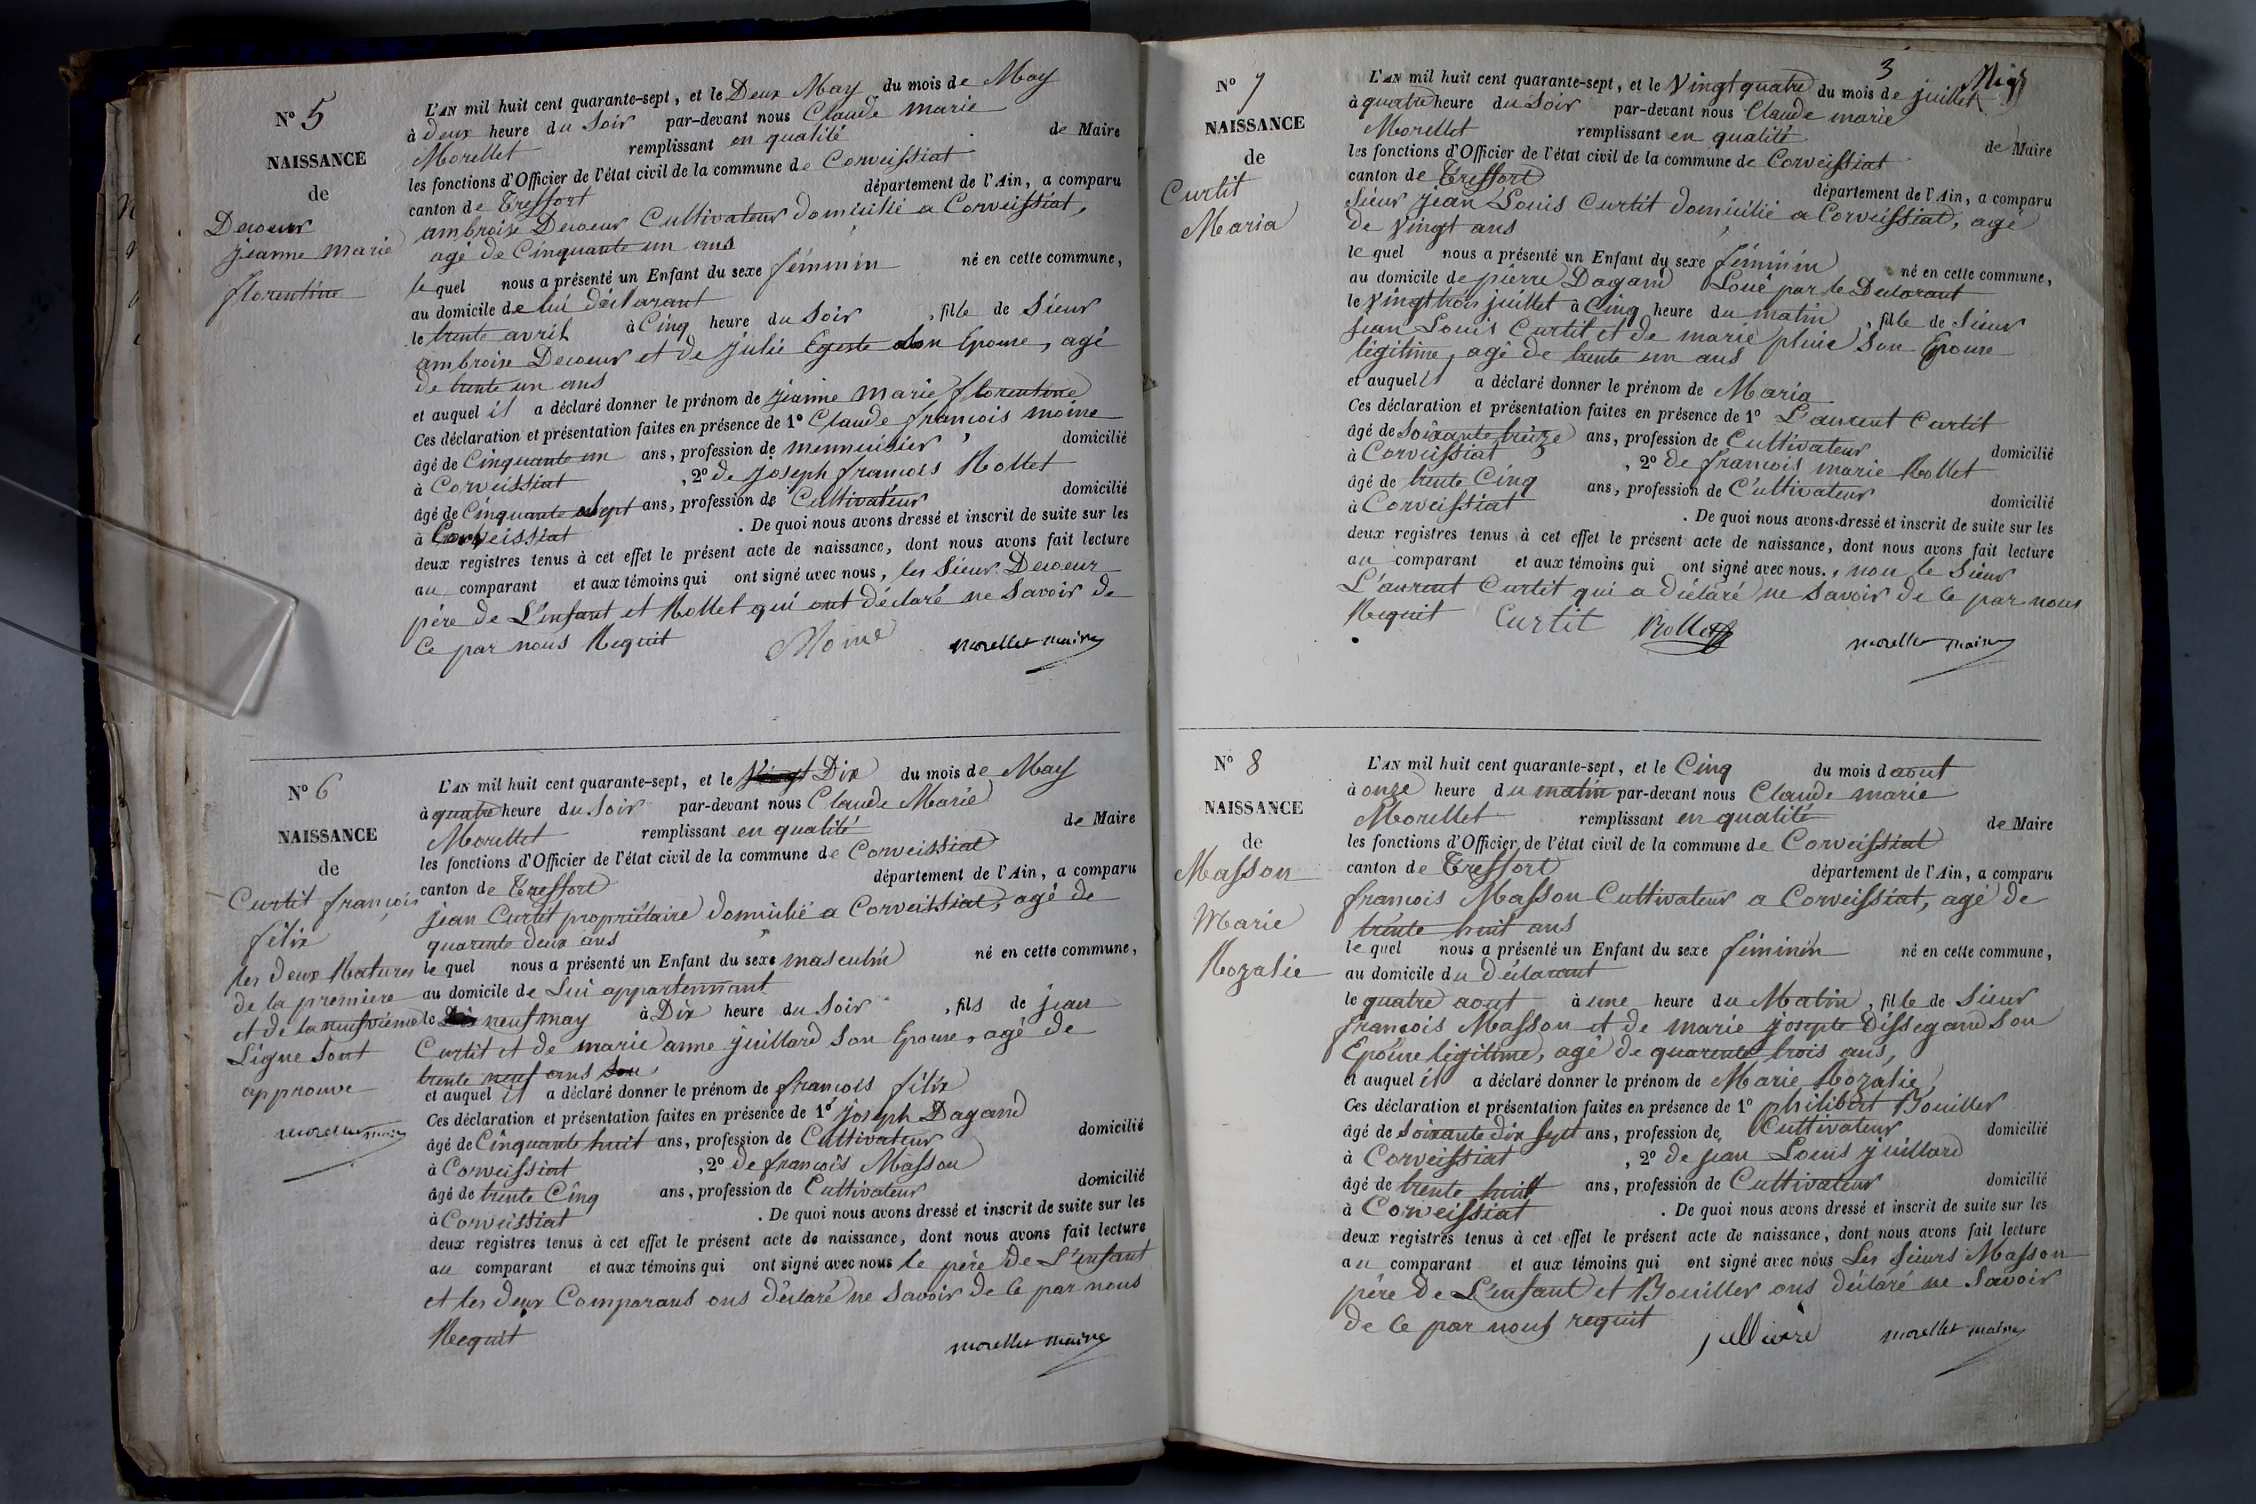 N° 5
NAISSANCE
de
Decoeur
jeanne marie
florentine
L'AN mil huit cent quarante-sept, et le Deux May du mois de May
à deux heure du Soir par-devant nous Claude marie
Morellet remplissant en qualité de Maire
les fonctions d'Officier de l'état civil de la commune de Corveissiat
canton de Treffort département de l'Ain, a comparu
ambroise Decoeur Cultivateur domicilié a Corveissiat,
agé de Cinquante un ans
le quel nous a présenté un Enfant du sexe féminin né en cette commune,
au domicile de lui déclarant
le trente avril à Cinq heure du Soir, fille de Sieur
ambroise Decoeur et de julie Epouse, agé
de trente un ans
et auquel il a déclaré donner le prénom de jeanne marie florentine
Ces déclaration et présentation faites en présence de 1° Claude francois moine
âgé de Cinquante un ans, profession de mennuisier domicilié
à Corveissiat, 2° de joseph francois Rollet
âgé de Cinquante sept ans, profession de Cultivateur domicilié
à Corveissiat. De quoi nous avons dressé et inscrit de suite sur les
deux registres tenus à cet effet le présent acte de naissance, dont nous avons fait lecture
au comparant et aux témoins qui ont signé avec nous, les Sieur Decoeur
père de L'enfant et Rollet qui ont déclaré ne Savoir de
Ce par nous Requit Moine morellet maire
N° 6
NAISSANCE
de
Curtit françois
félix
les deux Ratures
de la premiere
et de la neufvième
Ligne Sont
approuvé
morellet maire
L'AN mil huit cent quarante-sept, et le Vingt Dix du mois de May
à quatre heure du Soir par-devant nous Claude Marie
Morellet remplissant en qualité de Maire
les fonctions d'Officier de l'état civil de la commune de Corveissiat
canton de Treffort département de l'Ain, a comparu
jean Curtit propriétaire domicilié a Corveissiat, agé de
quarente deux ans
le quel nous a présenté un Enfant du sexe masculin né en cette commune,
au domicile de Lui appartennant
le neuf may à Dix heure du Soir, fils de jean
Curtit et de marie anne juillard Son Epouse, agé de
trente neuf ans
et auquel il a déclaré donner le prénom de francois félix
Ces déclaration et présentation faites en présence de 1° joseph Dagand
âgé de Cinquante huit ans, profession de Cultivateur domicilié
à Corveissiat, 2° de françois Masson
âgé de trente Cinq ans, profession de Cultivateur domicilié
à Corveissiat. De quoi nous avons dressé et inscrit de suite sur les
deux registres tenus à cet effet le présent acte de naissance, dont nous avons fait lecture
au comparant et aux témoins qui ont signé avec nous le père de L'enfant
et les deux Comparans ons déclaré ne Savoir de Ce par nous
Recquit morellet maire
3
N° 7
NAISSANCE
de
Curtit
Maria
L'AN mil huit cent quarante-sept, et le Vingt quatre du mois de juillet
à quatre heure du Soir par-devant nous Claude marie
Morellet remplissant en qualité de Maire
les fonctions d'Officier de l'état civil de la commune de Corveissiat
canton de Treffort département de l'Ain, a comparu
Sieur jean Louis Curtit domicilié a Corveissiat, agé
de Vingt ans
le quel nous a présenté un Enfant du sexe féminin né en cette commune,
au domicile de pierre Dagand Loué par le Declarant
le Vingt trois juillet à Cinq heure du matin, fille de Sieur
jean Louis Curtit et de marie pluie Son Epouse
légitime, agé de trente un ans
et auquel il a déclaré donner le prénom de Maria
Ces déclaration et présentation faites en présence de 1° Laurent Curtit
âgé de Soixante treize ans, profession de Cultivateur domicilié
à Corveissiat, 2° de francois marie Rollet
âgé de trente Cinq ans, profession de Cultivateur domicilié
à Corveissiat. De quoi nous avons dressé et inscrit de suite sur les
deux registres tenus à cet effet le présent acte de naissance, dont nous avons fait lecture
au comparant et aux témoins qui ont signé avec nous, non le Sieur
L'aurent Curtit qui a déclaré ne Savoir de Ce par nous
Requit Curtit Rollet morellet maire
N° 8
NAISSANCE
de
Masson
Marie
Rozalie
L'AN mil huit cent quarante-sept, et le Cinq du mois d aout
à onze heure du matin par-devant nous Claude marie
Morellet remplissant en qualité de Maire
les fonctions d'Officier de l'état civil de la commune de Corveissiat
canton de Treffort département de l'Ain, a comparu
francois Masson Cultivateur a Corveissiat, agé de
trente huit ans
le quel nous a présenté un Enfant du sexe féminin né en cette commune,
au domicile du déclarant
le quatre aout à une heure du Matin, fille de Sieur
françois Masson et de marie josepte Dissegand Son
Epouse légitime, agé de quarente trois ans,
et auquel il a déclaré donner le prénom de Marie Rozalie
Ces déclaration et présentation faites en présence de 1° philibert Bouiller
âgé de soixante dix sept ans, profession de Cultivateur domicilié
à Corveissiat, 2° de jean Louis juillard
âgé de trente huit ans, profession de Cultivateur domicilié
à Corveissiat. De quoi nous avons dressé et inscrit de suite sur les
deux registres tenus à cet effet le présent acte de naissance, dont nous avons fait lecture
au comparant et aux témoins qui ont signé avec nous Les Sieurs Masson
père de L'enfant et Bouiller ons déclaré ne Savoir
de Ce par nous requit morellet maire